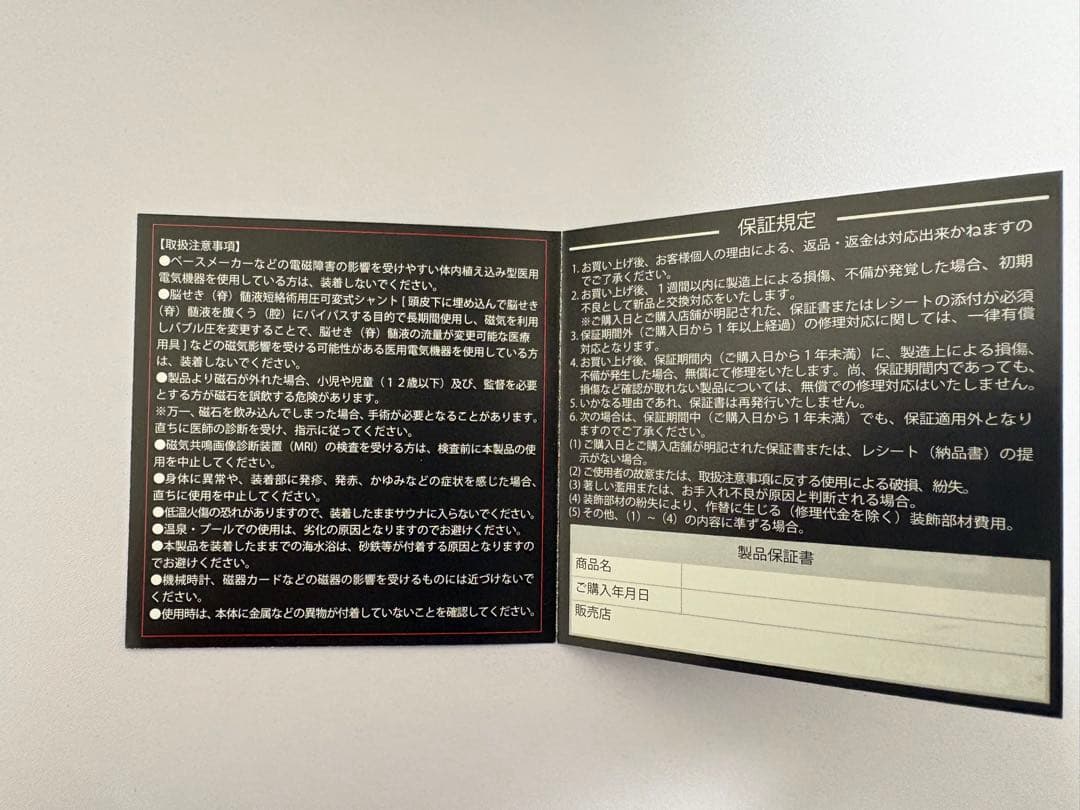 【取扱注意事項】
●ペースメーカーなどの電磁障害の影響を受けやすい体内植え込み型医用
電気機器を使用している方は、装着しないでください。
●脳せき（脊）髄液短絡術用圧可変式シャント [ 頭皮下に埋め込んで脳せき
（脊）髄液を腹くう（腔）にバイパスする目的で長期間使用し、磁気を利用
しバブル圧を変更することで、脳せき（脊）髄液の流量が変更可能な医療
用具 ] などの磁気影響を受ける可能性がある医用電気機器を使用している方
は、装着しないでください。
●製品より磁石が外れた場合、小児や児童（１２歳以下）及び、監督を必要
とする方が磁石を誤飲する危険があります。
※万一、磁石を飲み込んでしまった場合、手術が必要となることがあります。
直ちに医師の診断を受け、指示に従ってください。
●磁気共鳴画像診断装置（MRI）の検査を受ける方は、検査前に本製品の使
用を中止してください。
●身体に異常や、装着部に発疹、発赤、かゆみなどの症状を感じた場合、
直ちに使用を中止してください。
●低温火傷の恐れがありますので、装着したままサウナに入らないでください。
●温泉・プールでの使用は、劣化の原因となりますのでお避けください。
●本製品を装着したままでの海水浴は、砂鉄等が付着する原因となりますの
でお避けください。
●機械時計、磁器カードなどの磁器の影響を受けるものには近づけないで
ください。
●使用時は、本体に金属などの異物が付着していないことを確認してください。
保証規定
1. お買い上げ後、お客様個人の理由による、返品・返金は対応出来かねますの
でご了承ください。
2. お買い上げ後、1週間以内に製造上による損傷、不備が発覚した場合、初期
不良として新品と交換対応をいたします。
※ご購入日とご購入店舗が明記された、保証書またはレシートの添付が必須
3. 保証期間外（ご購入日から１年以上経過）の修理対応に関しては、一律有償
対応となります。
4. お買い上げ後、保証期間内（ご購入日から１年未満）に、製造上による損傷、
不備が発生した場合、無償にて修理をいたします。尚、保証期間内であっても、
損傷など確認が取れない製品については、無償での修理対応はいたしません。
5. いかなる理由であれ、保証書は再発行いたしません。
6. 次の場合は、保証期間中（ご購入日から１年未満）でも、保証適用外となり
ますのでご了承ください。
(1) ご購入日とご購入店舗が明記された保証書または、レシート（納品書）の提
示がない場合。
(2) ご使用者の故意または、取扱注意事項に反する使用による破損、紛失。
(3) 著しい濫用または、お手入れ不良が原因と判断される場合。
(4) 装飾部材の紛失により、作替に生じる（修理代金を除く）装飾部材費用。
(5) その他、（1）～（4）の内容に準ずる場合。
製品保証書
商品名
ご購入年月日
販売店